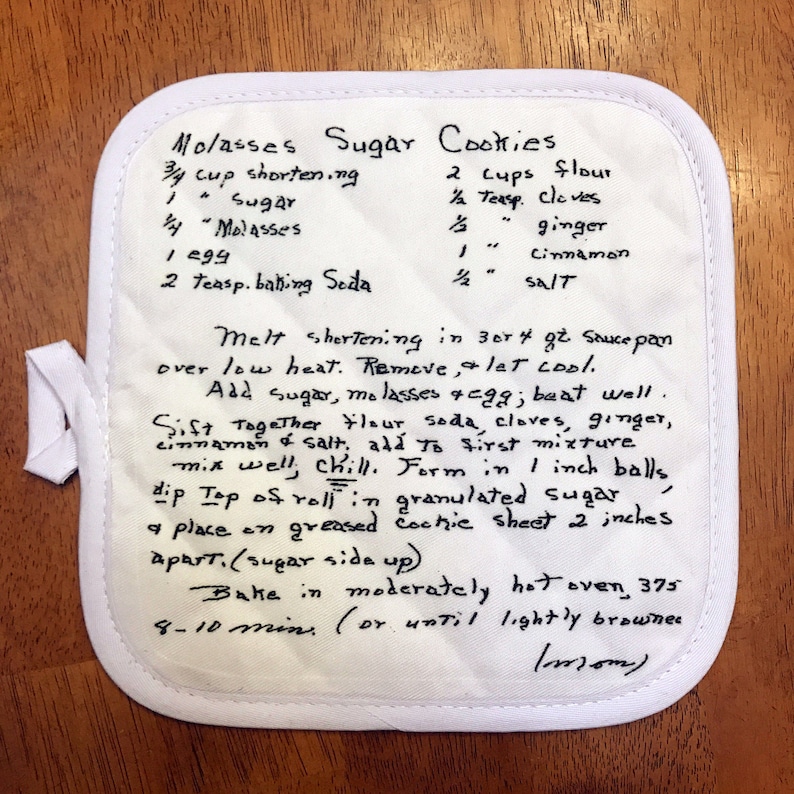 Molasses Sugar Cookies
3/4 cup shortening
1 " sugar
1/4 " Molasses
1 egg
2 teasp. baking Soda
2 cups flour
1/2 teasp. cloves
1/2 " ginger
1 " cinnamon
1/2 " salt
Melt shortening in 3 or 4 qt. saucepan
over low heat. Remove, & let cool.
Add sugar, molasses & egg; beat well.
Sift together flour, soda, cloves, ginger,
cinnamon & salt, add to first mixture
mix well, Chill. Form in 1 inch balls,
dip Top of roll in granulated sugar
& place on greased cookie sheet 2 inches
apart. (sugar side up)
Bake in moderately hot oven, 375
8-10 min. (or until lightly browned
(mom)